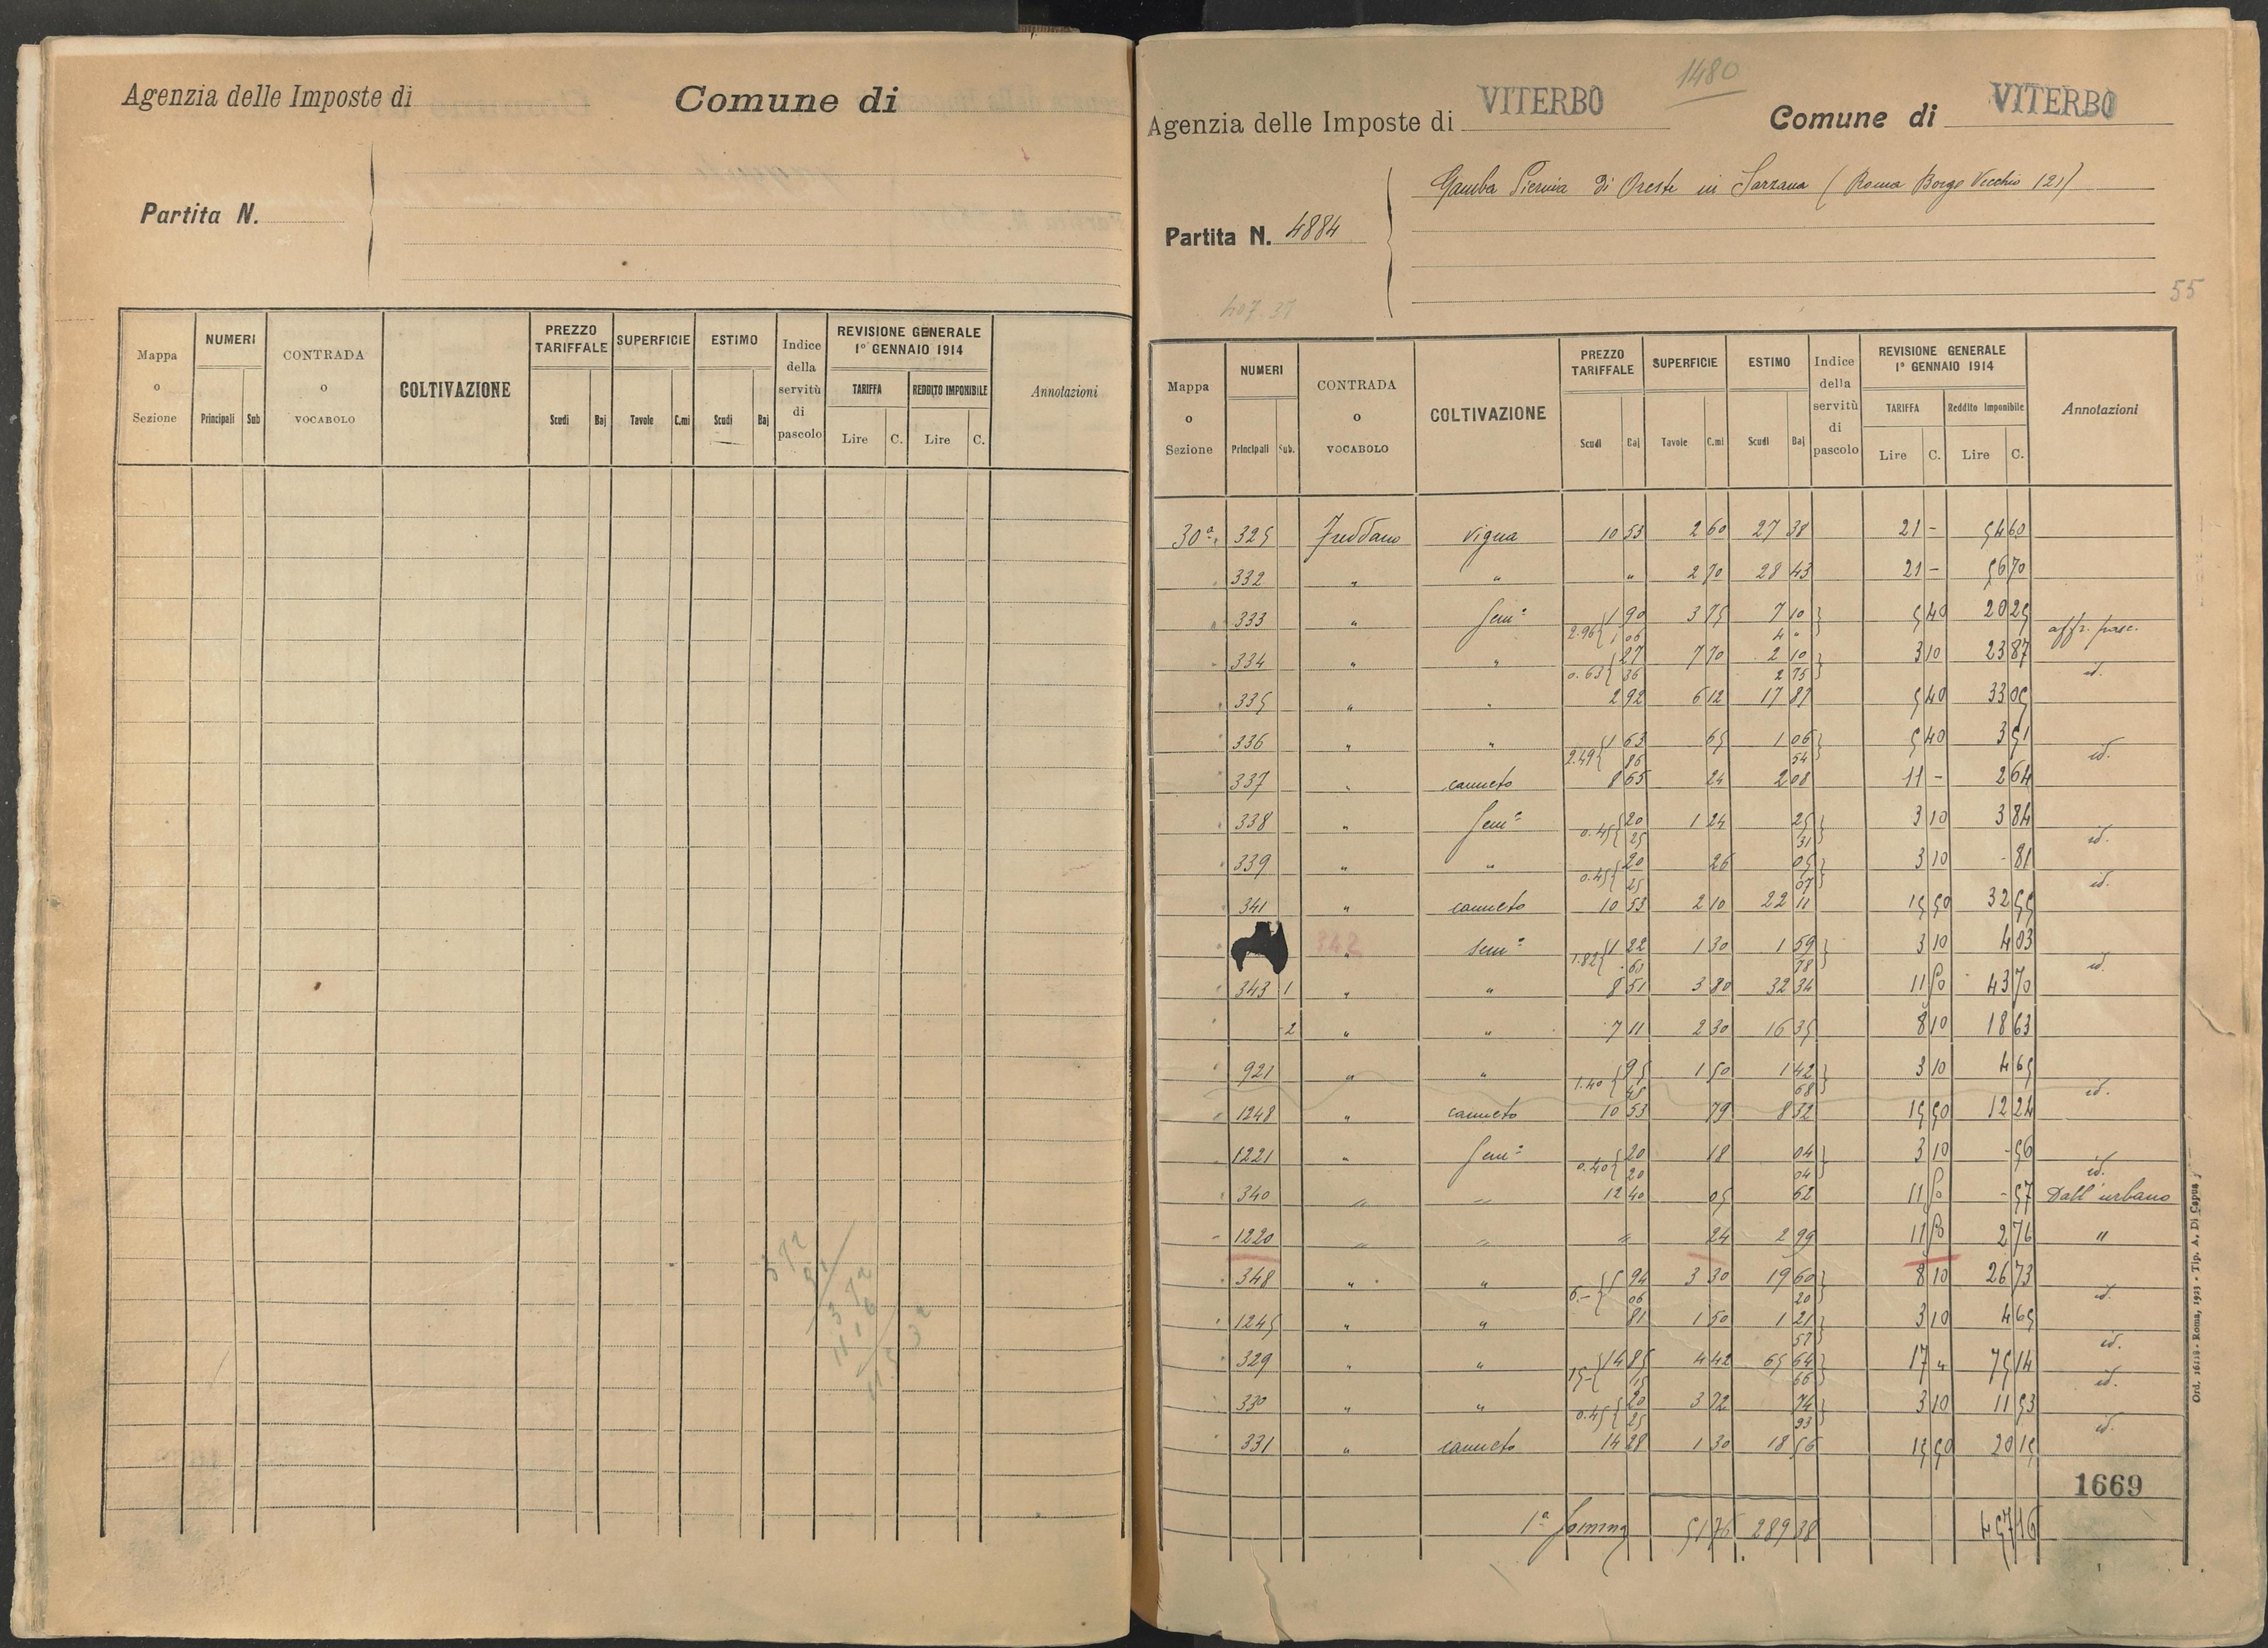 Agenzia delle Imposte di Comune di
Partita N.
Mappa o Sezione NUMERI Principali Sub CONTRADA o VOCABOLO COLTIVAZIONE PREZZO TARIFFALE Scudi Baj SUPERFICIE Tavole C.mi ESTIMO Scudi Baj Indice della servitù di pascolo REVISIONE GENERALE 1° GENNAIO 1914 TARIFFA Lire C. REDDITO IMPONIBILE Lire C. Annotazioni
1480
Agenzia delle Imposte di VITERBO Comune di VITERBO
Gamba Pierina di Oreste in Sarzana (Roma Borgo Vecchio 121)
Partita N. 4884
55
407.37
Mappa o Sezione NUMERI Principali Sub. CONTRADA o VOCABOLO COLTIVAZIONE PREZZO TARIFFALE Scudi Baj SUPERFICIE Tavole C.mi ESTIMO Scudi Baj Indice della servitù di pascolo REVISIONE GENERALE 1° GENNAIO 1914 TARIFFA Lire C. Reddito Imponibile Lire C. Annotazioni
30ª 325 Freddano vigna 10 53 2 60 27 38 21 - 54 60
332 " " " 2 70 28 43 21 - 56 70
333 " Sem° 1 90 3 75 7 10 5 40 20 25 affr. pasc.
2.96 1 06 4 "
334 " " 27 7 70 2 10 3 10 23 87 id.
0.63 36 2 75
335 " " 2 92 6 12 17 87 5 40 33 05
336 " " 1 63 65 1 06 5 40 3 51 id.
2.49 86 54
337 " canneto 8 65 24 2 08 11 - 2 64
338 " Sem° 20 1 24 25 3 10 3 84 id.
0.45 25 31
339 " " 20 26 05 3 10 - 81 id.
0.45 25 07
341 " canneto 10 53 2 10 22 11 15 50 32 55
342 " Sem° 1 22 1 30 1 59 3 10 4 03 id.
1.82 60 78
343 1 " " 8 51 3 80 32 34 11 50 43 70
2 " " 7 11 2 30 16 35 8 10 18 63
921 " " 95 1 50 1 42 3 10 4 65 id.
1.40 45 68
1248 " canneto 10 53 79 8 32 15 50 12 24
1221 " Sem° 20 18 04 3 10 - 56 id.
0.40 20 04
340 " " 12 40 05 62 11 50 - 57 Dall'urbano
1220 " " " 24 2 99 11 50 2 76 "
348 " " 5 94 3 30 19 60 8 10 26 73 id.
6.- 06 20
1245 " " 81 1 50 1 21 3 10 4 65 id.
57
329 " " 14 85 4 42 65 64 17 " 75 14 id.
15- 15 66
330 " " 20 3 72 74 3 10 11 53 id.
0.45 25 93
331 " canneto 14 28 1 30 18 56 15 50 20 15
1669
1ª Somma 51 76 289 38 457 16
Ord. 16118 - Roma, 1923 - Tip. A. Di Capua